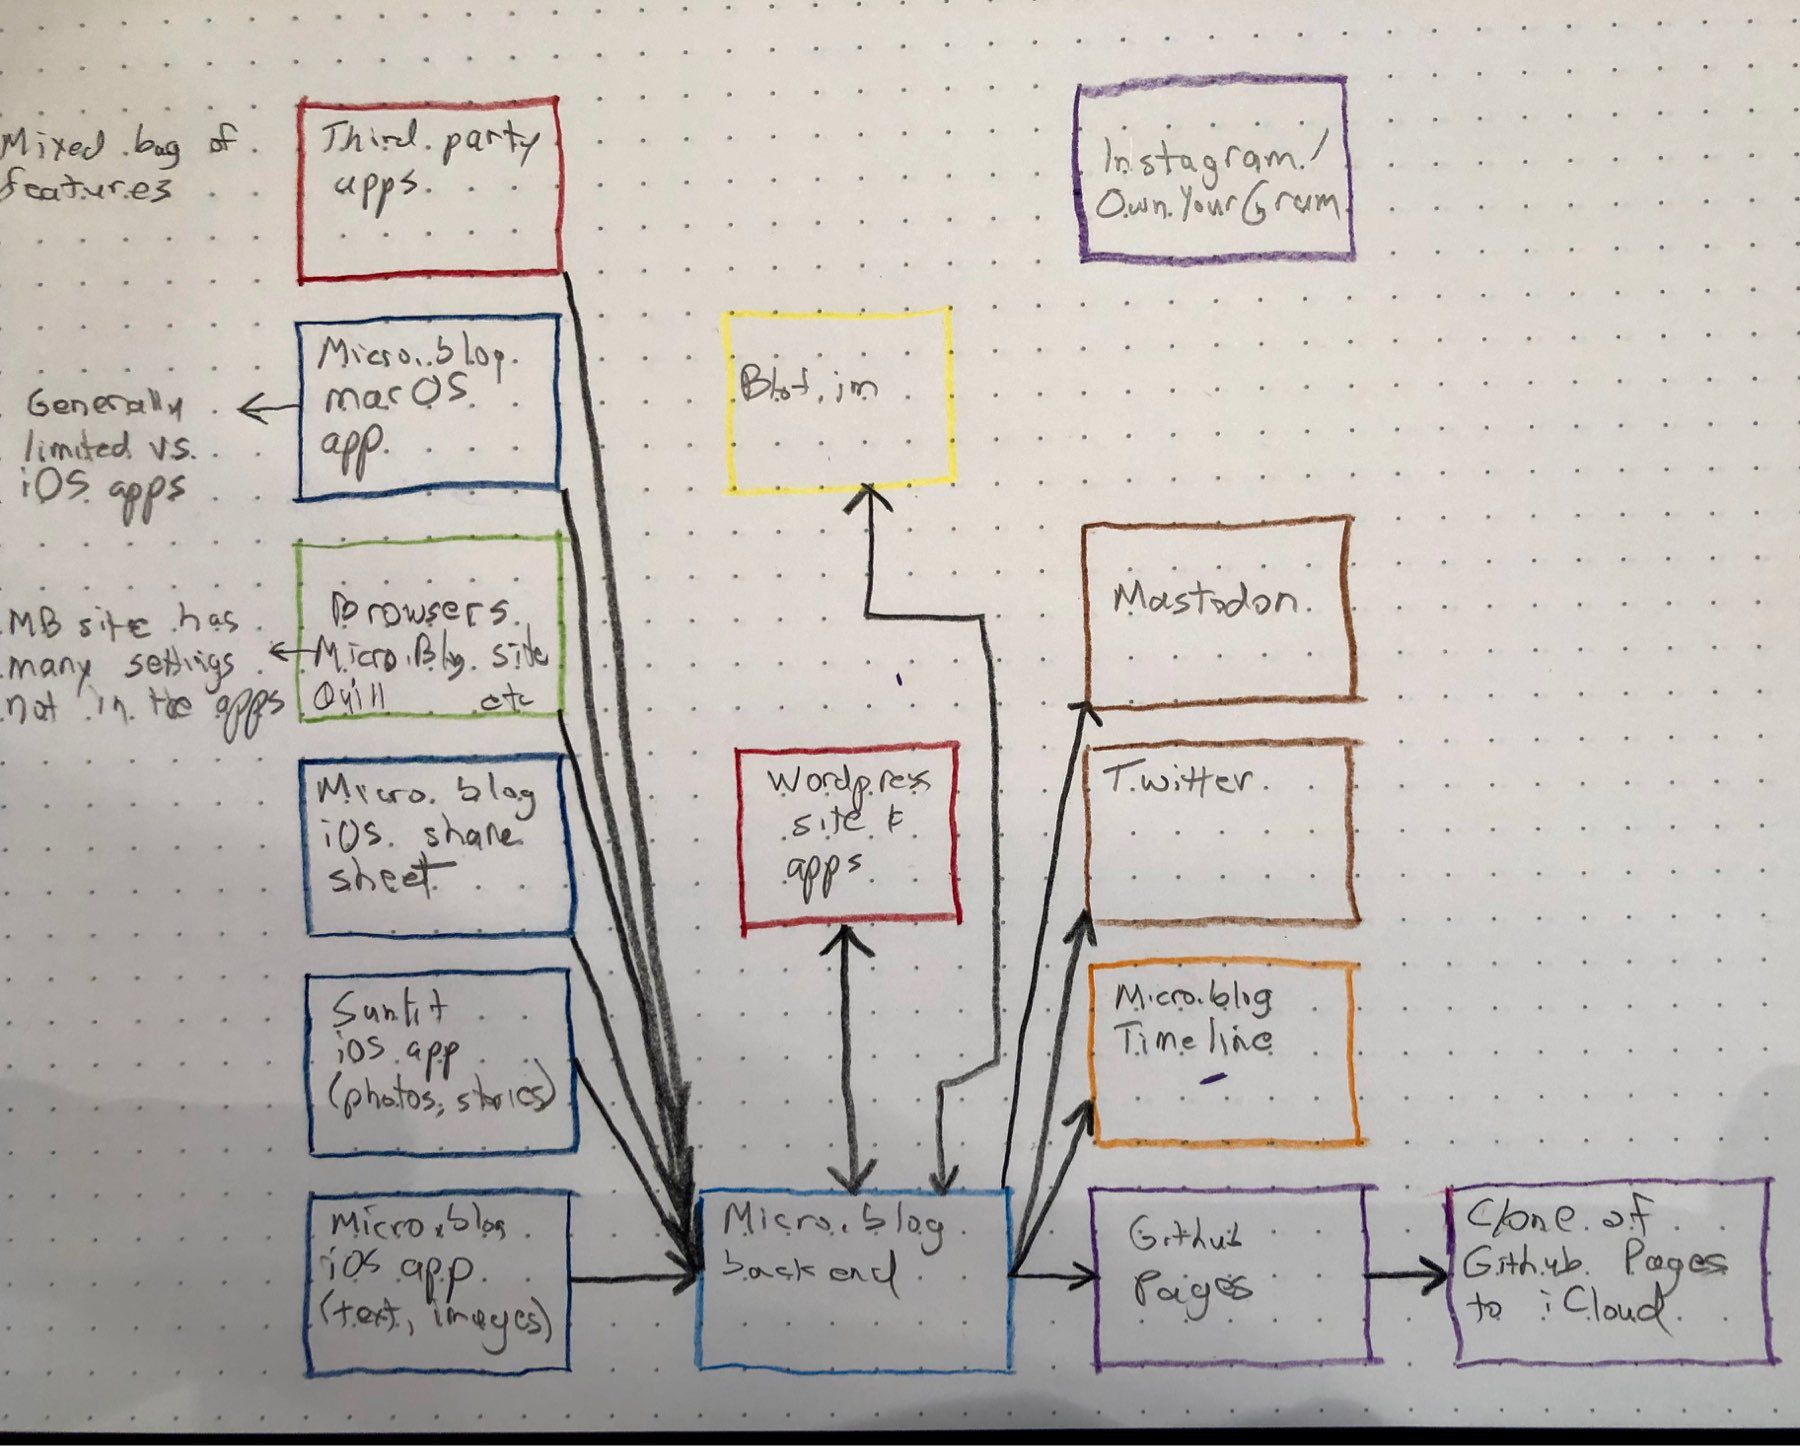 Mixed bag of
features
Third party
apps
Instagram /
Own Your Gram
Micro.blog
macOS
app
Generally
limited vs.
iOS apps
Blot.im
Browsers
Micro.Blog site
Quill etc
MB site has
many settings
not in the apps
Mastodon
Micro.blog
iOS share
sheet
Wordpress
site &
apps
Twitter
Sunlit
iOS app
(photos, stories)
Micro.blog
Timeline
Micro.blog
iOS app
(text, images)
Micro.blog
backend
Github
Pages
Clone of
Github Pages
to iCloud